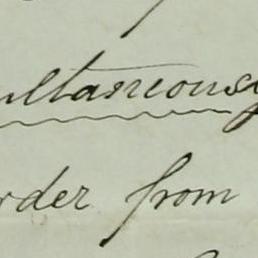 ultaneously
rder from